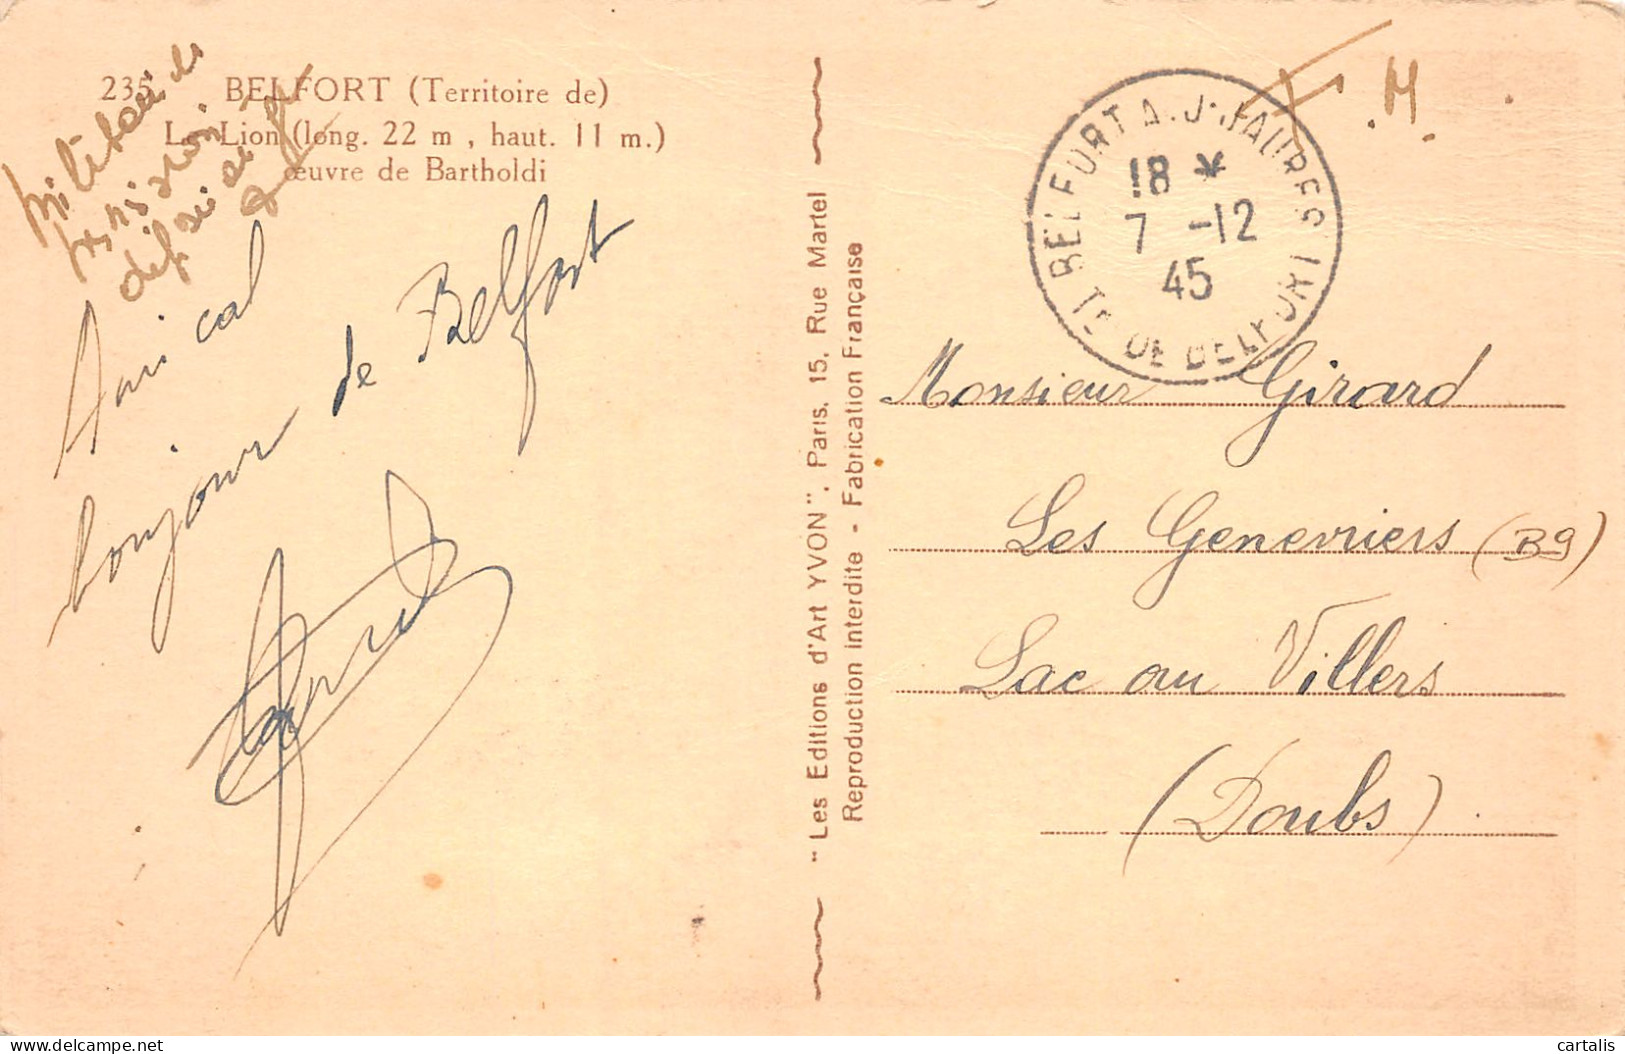 235 BELFORT (Territoire de)
Le Lion (long. 22 m , haut. 11 m.)
œuvre de Bartholdi
Amical
bonjour de Belfort
"Les Editions d'Art YVON", Paris, 15, Rue Martel
Reproduction interdite - Fabrication Française
F.M.
BELFORT A. J. JAURES
18 *
7 -12
45
Tre DE BELFORT
Monsieur Girard
Les Genevriers (B9)
Lac ou Villers
(Doubs)
cartalis